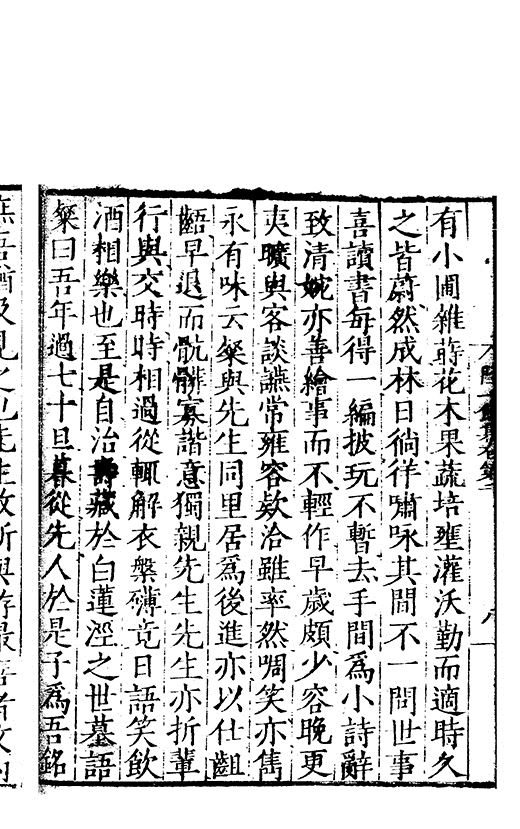 有小圃雜蒔花木果蔬培壅灌沃勤而適時久
之皆蔚然成林日徜徉嘯咏其間不一問世事
喜讀書每得一編披玩不暫去手間為小詩辭
致清婉亦善繪事而不輕作早歲頗少容晚更
夷曠與客談讌常雍容欵洽雖率然啁笑亦雋
永有味云粲與先生同里居為後進亦以仕齟
齬早退而骯髒寡諧意獨親先生先生亦折輩
行與交時時相過從輒解衣槃礴竟日語笑飲
酒相樂也至是自治壽藏於白蓮涇之世墓語
粲曰吾年過七十旦暮從先人於是子為吾銘